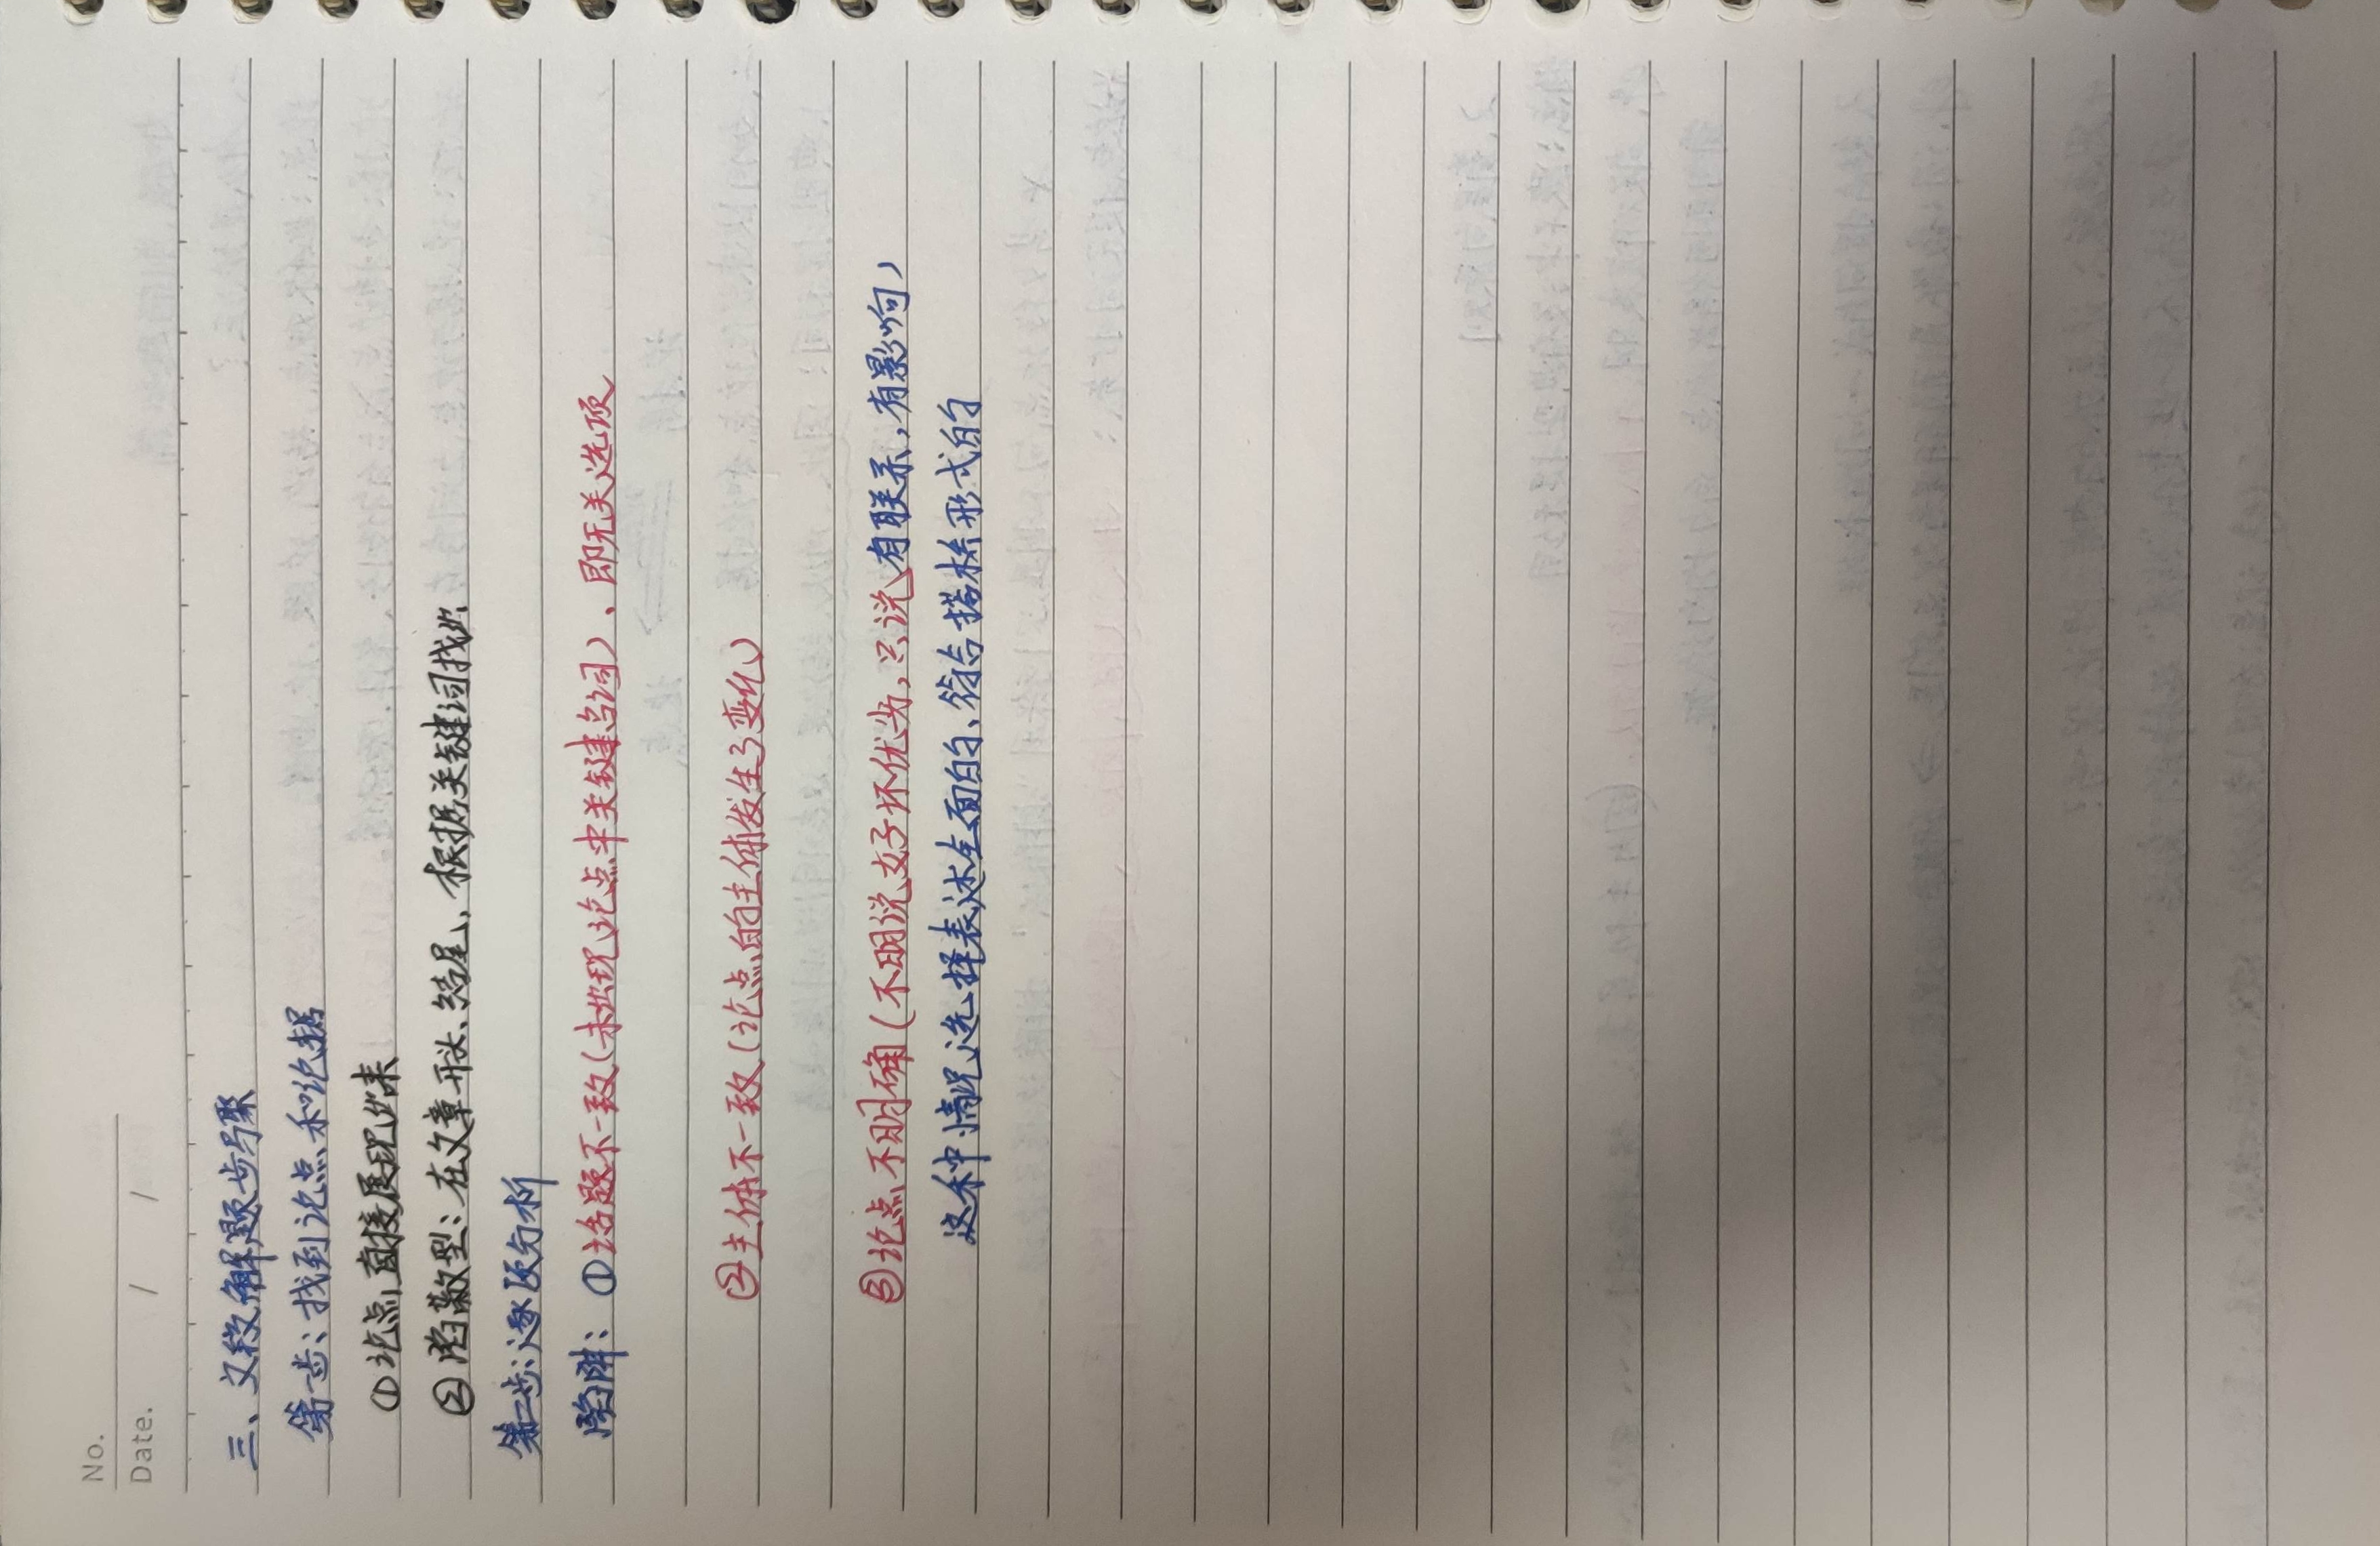 No.
Date. / /
三、文段解题步骤
第一步：找到论点和论据
①论点直接展现出来
②隐蔽型：在文章开头、结尾，根据关键词找出
第二步：逐项分析
陷阱：①话题不一致（未出现论点中关键名词）、即无关选项
②主体不一致（论点的主体发生了变化）
③论点不明确（不明说好坏优劣，只说有联系，有影响）
这种情况选择表述全面的、符合搭桥形式的